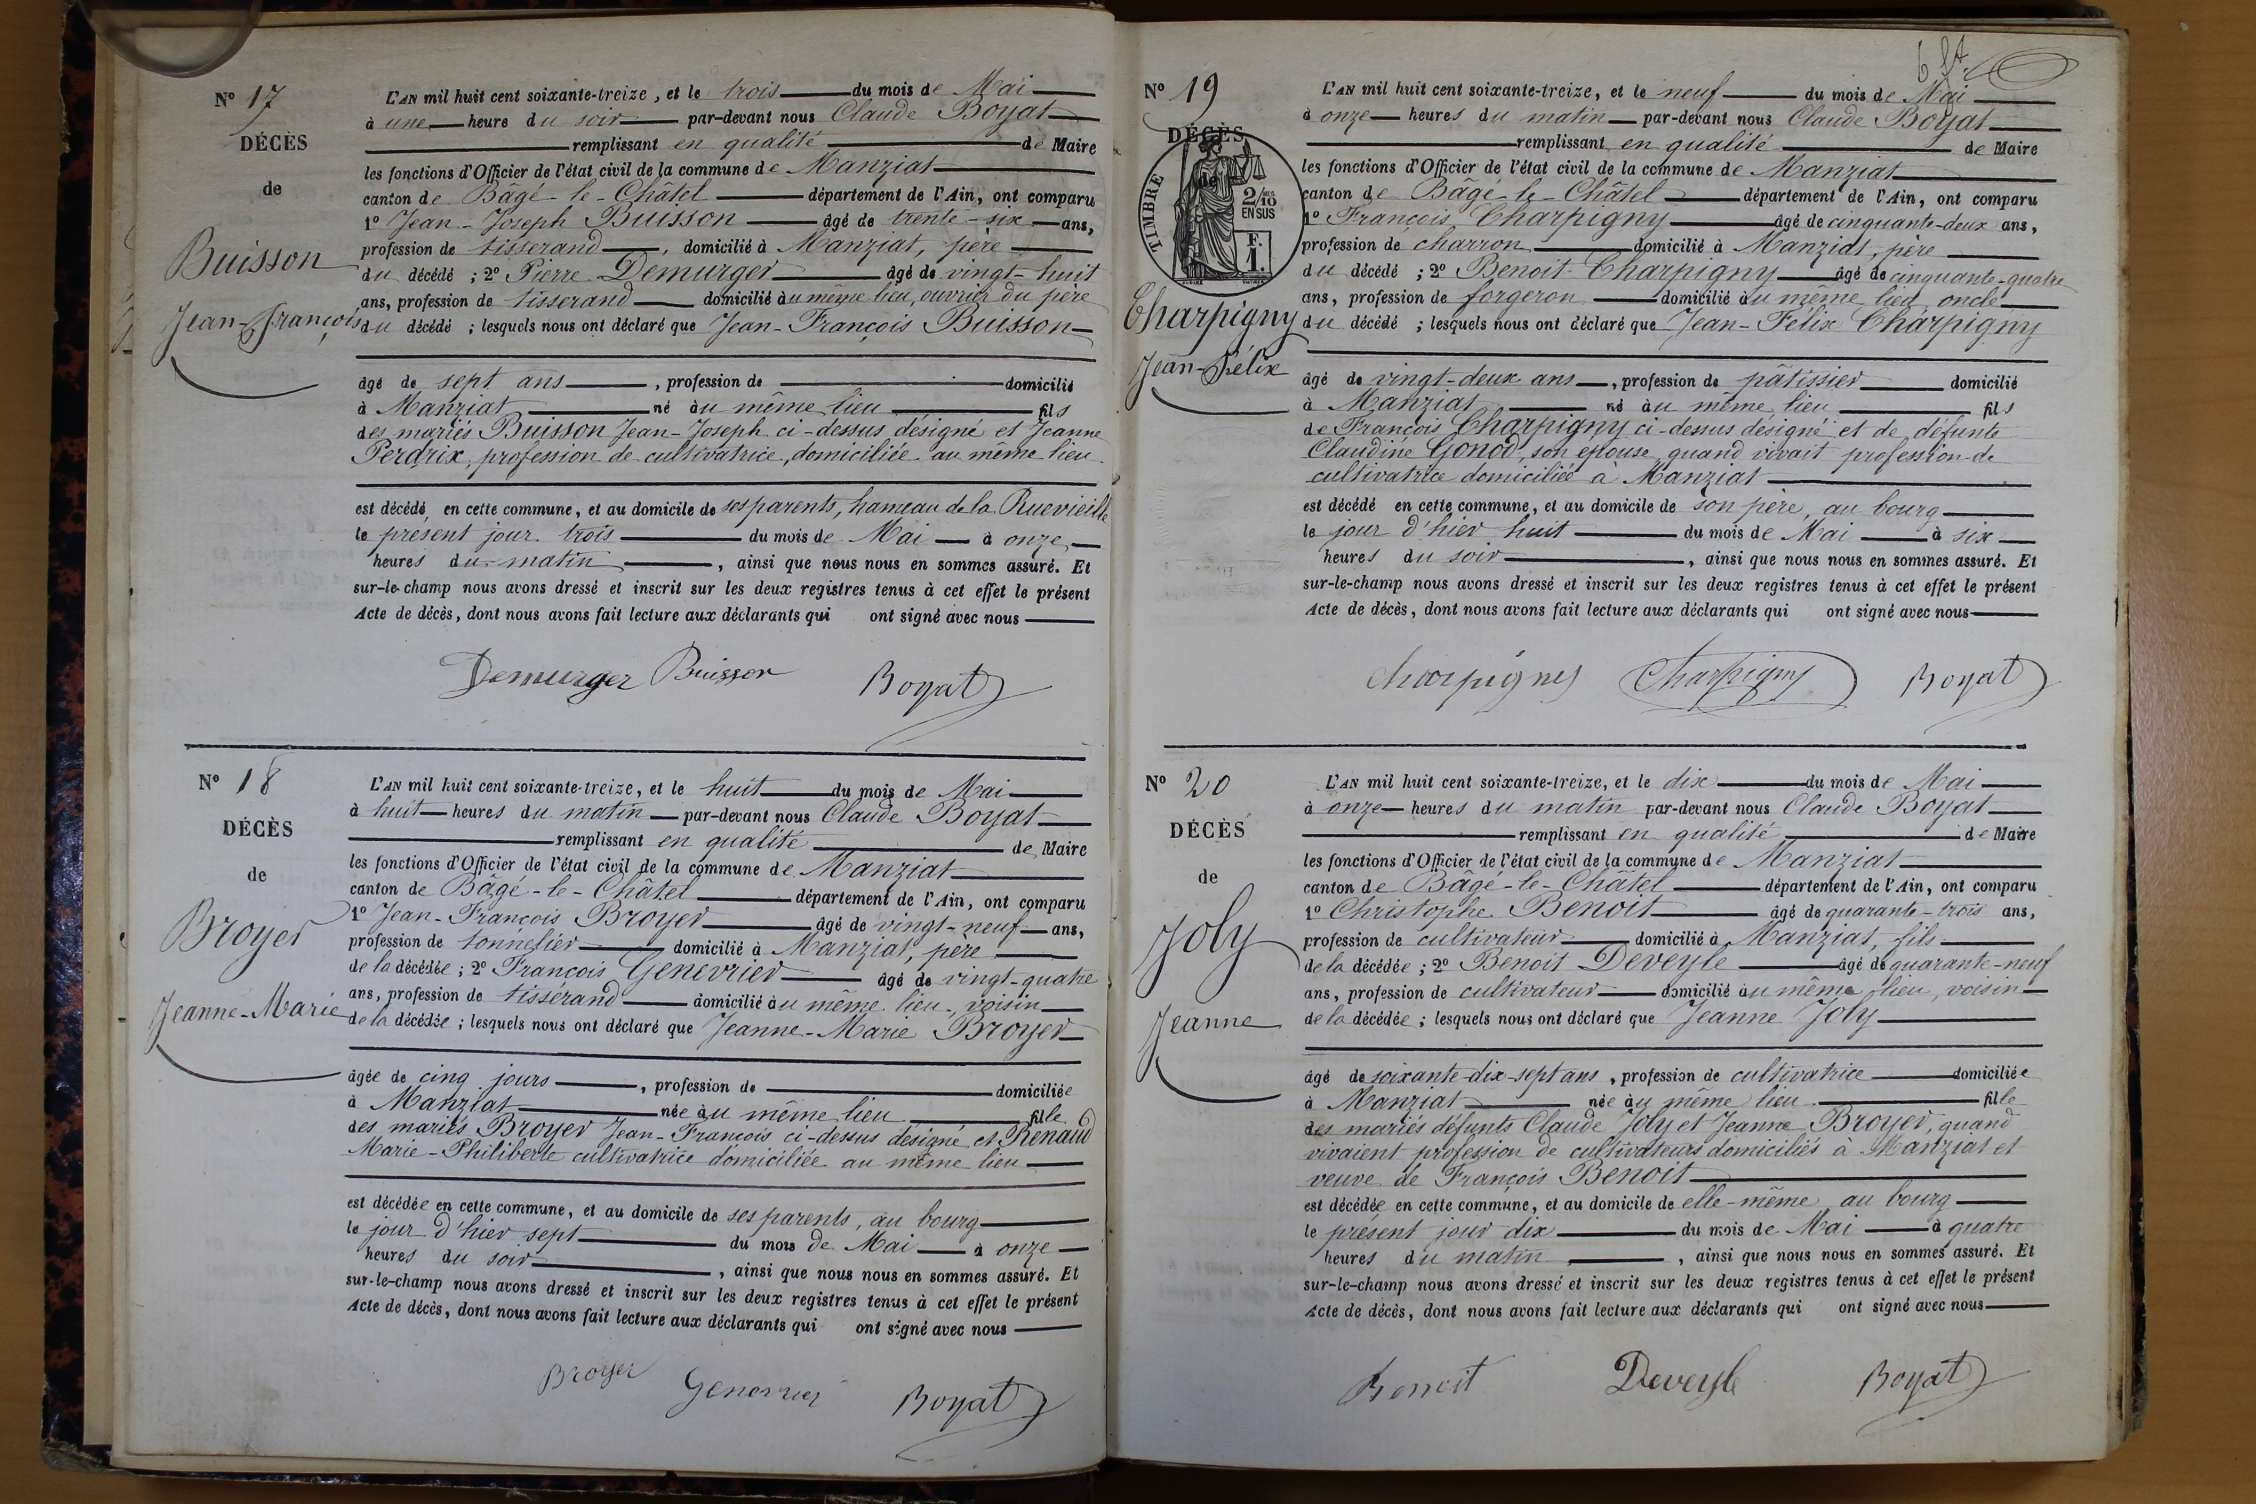 N° 17
DÉCÈS
de
Buisson
Jean-François
L'AN mil huit cent soixante-treize, et le trois du mois de Mai
à une heure du soir par-devant nous Claude Boyat
remplissant en qualité de Maire
les fonctions d'Officier de l'état civil de la commune de Manziat
canton de Bâgé-le-Châtel département de l'Ain, ont comparu
1° Jean-Joseph Buisson âgé de trente-six ans,
profession de tisserand, domicilié à Manziat, père
du décédé ; 2° Pierre Demurger âgé de vingt-huit
ans, profession de tisserand domicilié au même lieu, ouvrier du père
du décédé ; lesquels nous ont déclaré que Jean-François Buisson
âgé de sept ans, profession de domicilié
à Manziat né au même lieu fils
des mariés Buisson Jean-Joseph ci-dessus désigné et Jeanne
Perdrix, profession de cultivatrice, domiciliée au même lieu
est décédé en cette commune, et au domicile de ses parents, hameau de la Ruevieille
le présent jour trois du mois de Mai à onze
heures du matin, ainsi que nous nous en sommes assuré. Et
sur-le-champ nous avons dressé et inscrit sur les deux registres tenus à cet effet le présent
Acte de décès, dont nous avons fait lecture aux déclarants qui ont signé avec nous
Demurger Buisson Boyat
N° 18
DÉCÈS
de
Broyer
Jeanne-Marie
L'AN mil huit cent soixante-treize, et le huit du mois de Mai
à huit heures du matin par-devant nous Claude Boyat
remplissant en qualité de Maire
les fonctions d'Officier de l'état civil de la commune de Manziat
canton de Bâgé-le-Châtel département de l'Ain, ont comparu
1° Jean-François Broyer âgé de vingt-neuf ans,
profession de tonnelier domicilié à Manziat, père
de la décédée ; 2° François Genevrier âgé de vingt-quatre
ans, profession de tissérand domicilié au même lieu, voisin
de la décédée ; lesquels nous ont déclaré que Jeanne-Marie Broyer
âgée de cinq jours, profession de domiciliée
à Manziat née au même lieu fille
des mariés Broyer Jean-François ci-dessus désigné et Renaud
Marie-Philiberte cultivatrice domiciliée au même lieu
est décédée en cette commune, et au domicile de ses parents, au bourg
le jour d'hier sept du mois de Mai à onze
heures du soir, ainsi que nous nous en sommes assuré. Et
sur-le-champ nous avons dressé et inscrit sur les deux registres tenus à cet effet le présent
Acte de décès, dont nous avons fait lecture aux déclarants qui ont signé avec nous
Broyer Genevrier Boyat
N° 19
DÉCÈS
de
TIMBRE
2/10
EN SUS
F.
1.
Charpigny
Jean-Félix
L'AN mil huit cent soixante-treize, et le neuf du mois de Mai
à onze heures du matin par-devant nous Claude Boyat
remplissant en qualité de Maire
les fonctions d'Officier de l'état civil de la commune de Manziat
canton de Bâgé-le-Châtel département de l'Ain, ont comparu
1° François Charpigny âgé de cinquante-deux ans,
profession de charron domicilié à Manziat, père
du décédé ; 2° Benoit Charpigny âgé de cinquante-quatre
ans, profession de forgeron domicilié au même lieu, oncle
du décédé ; lesquels nous ont déclaré que Jean-Félix Charpigny
âgé de vingt-deux ans, profession de pâtissier domicilié
à Manziat né au même lieu fils
de François Charpigny ci-dessus désigné et de défunte
Claudine Gonod, son épouse, quand vivait profession de
cultivatrice domiciliée à Manziat
est décédé en cette commune, et au domicile de son père, au bourg
le jour d'hier huit du mois de Mai à six
heures du soir, ainsi que nous nous en sommes assuré. Et
sur-le-champ nous avons dressé et inscrit sur les deux registres tenus à cet effet le présent
Acte de décès, dont nous avons fait lecture aux déclarants qui ont signé avec nous
Charpigny Charpigny Boyat
N° 20
DÉCÈS
de
Joly
Jeanne
L'AN mil huit cent soixante-treize, et le dix du mois de Mai
à onze heures du matin par-devant nous Claude Boyat
remplissant en qualité de Maire
les fonctions d'Officier de l'état civil de la commune de Manziat
canton de Bâgé-le-Châtel département de l'Ain, ont comparu
1° Christophe Benoit âgé de quarante-trois ans,
profession de cultivateur domicilié à Manziat, fils
de la décédée ; 2° Benoit Deveyle âgé de quarante-neuf
ans, profession de cultivateur domicilié au même lieu, voisin
de la décédée ; lesquels nous ont déclaré que Jeanne Joly
âgé de soixante-dix-sept ans, profession de cultivatrice domiciliée
à Manziat née au même lieu fille
des mariés défunts Claude Joly et Jeanne Broyer, quand
vivaient profession de cultivateurs domiciliés à Manziat et
veuve de François Benoit
est décédée en cette commune, et au domicile de elle-même au bourg
le présent jour dix du mois de Mai à quatre
heures du matin, ainsi que nous nous en sommes assuré. Et
sur-le-champ nous avons dressé et inscrit sur les deux registres tenus à cet effet le présent
Acte de décès, dont nous avons fait lecture aux déclarants qui ont signé avec nous
Benoit Deveyle Boyat